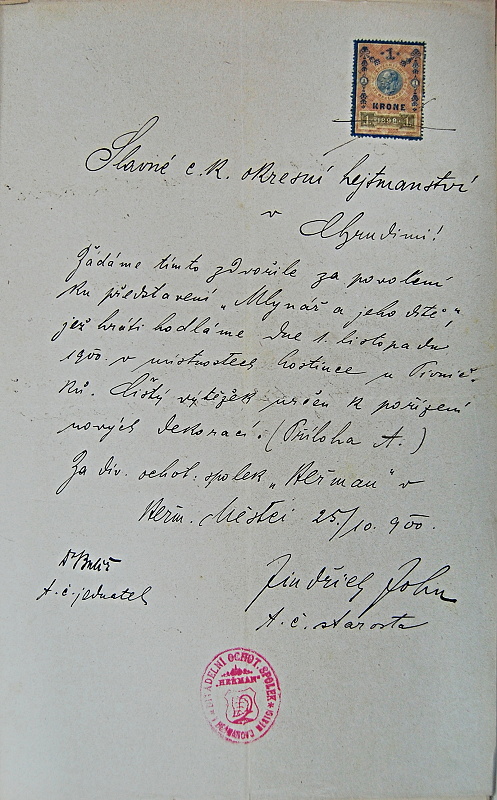 1
KRONE
1 1898 1
Slavné c. k. okresní hejtmanství
v Chrudimi!
Žádáme tímto zdvořile za povolení
ku představení „Mlynář a jeho dítě“,
jež hráti hodláme dne 1. listopadu
1900. v místnostech hostince u Pivnič-
ků. Čistý výtěžek určen k pořízení
nových dekorací. (Příloha A.)
Za div. ochot. spolek „Heřman“ v
Heřm. Městci 25./10. 900.
Dr
t. č. jednatel
Jindřich John
t. č. starosta
DIVADELNÍ OCHOT. SPOLEK
„HEŘMAN“